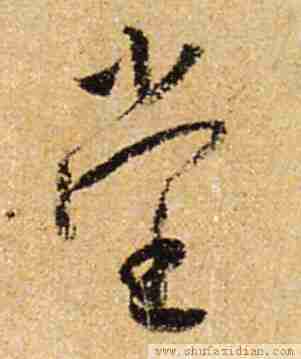 堂
www.shufazidian.com